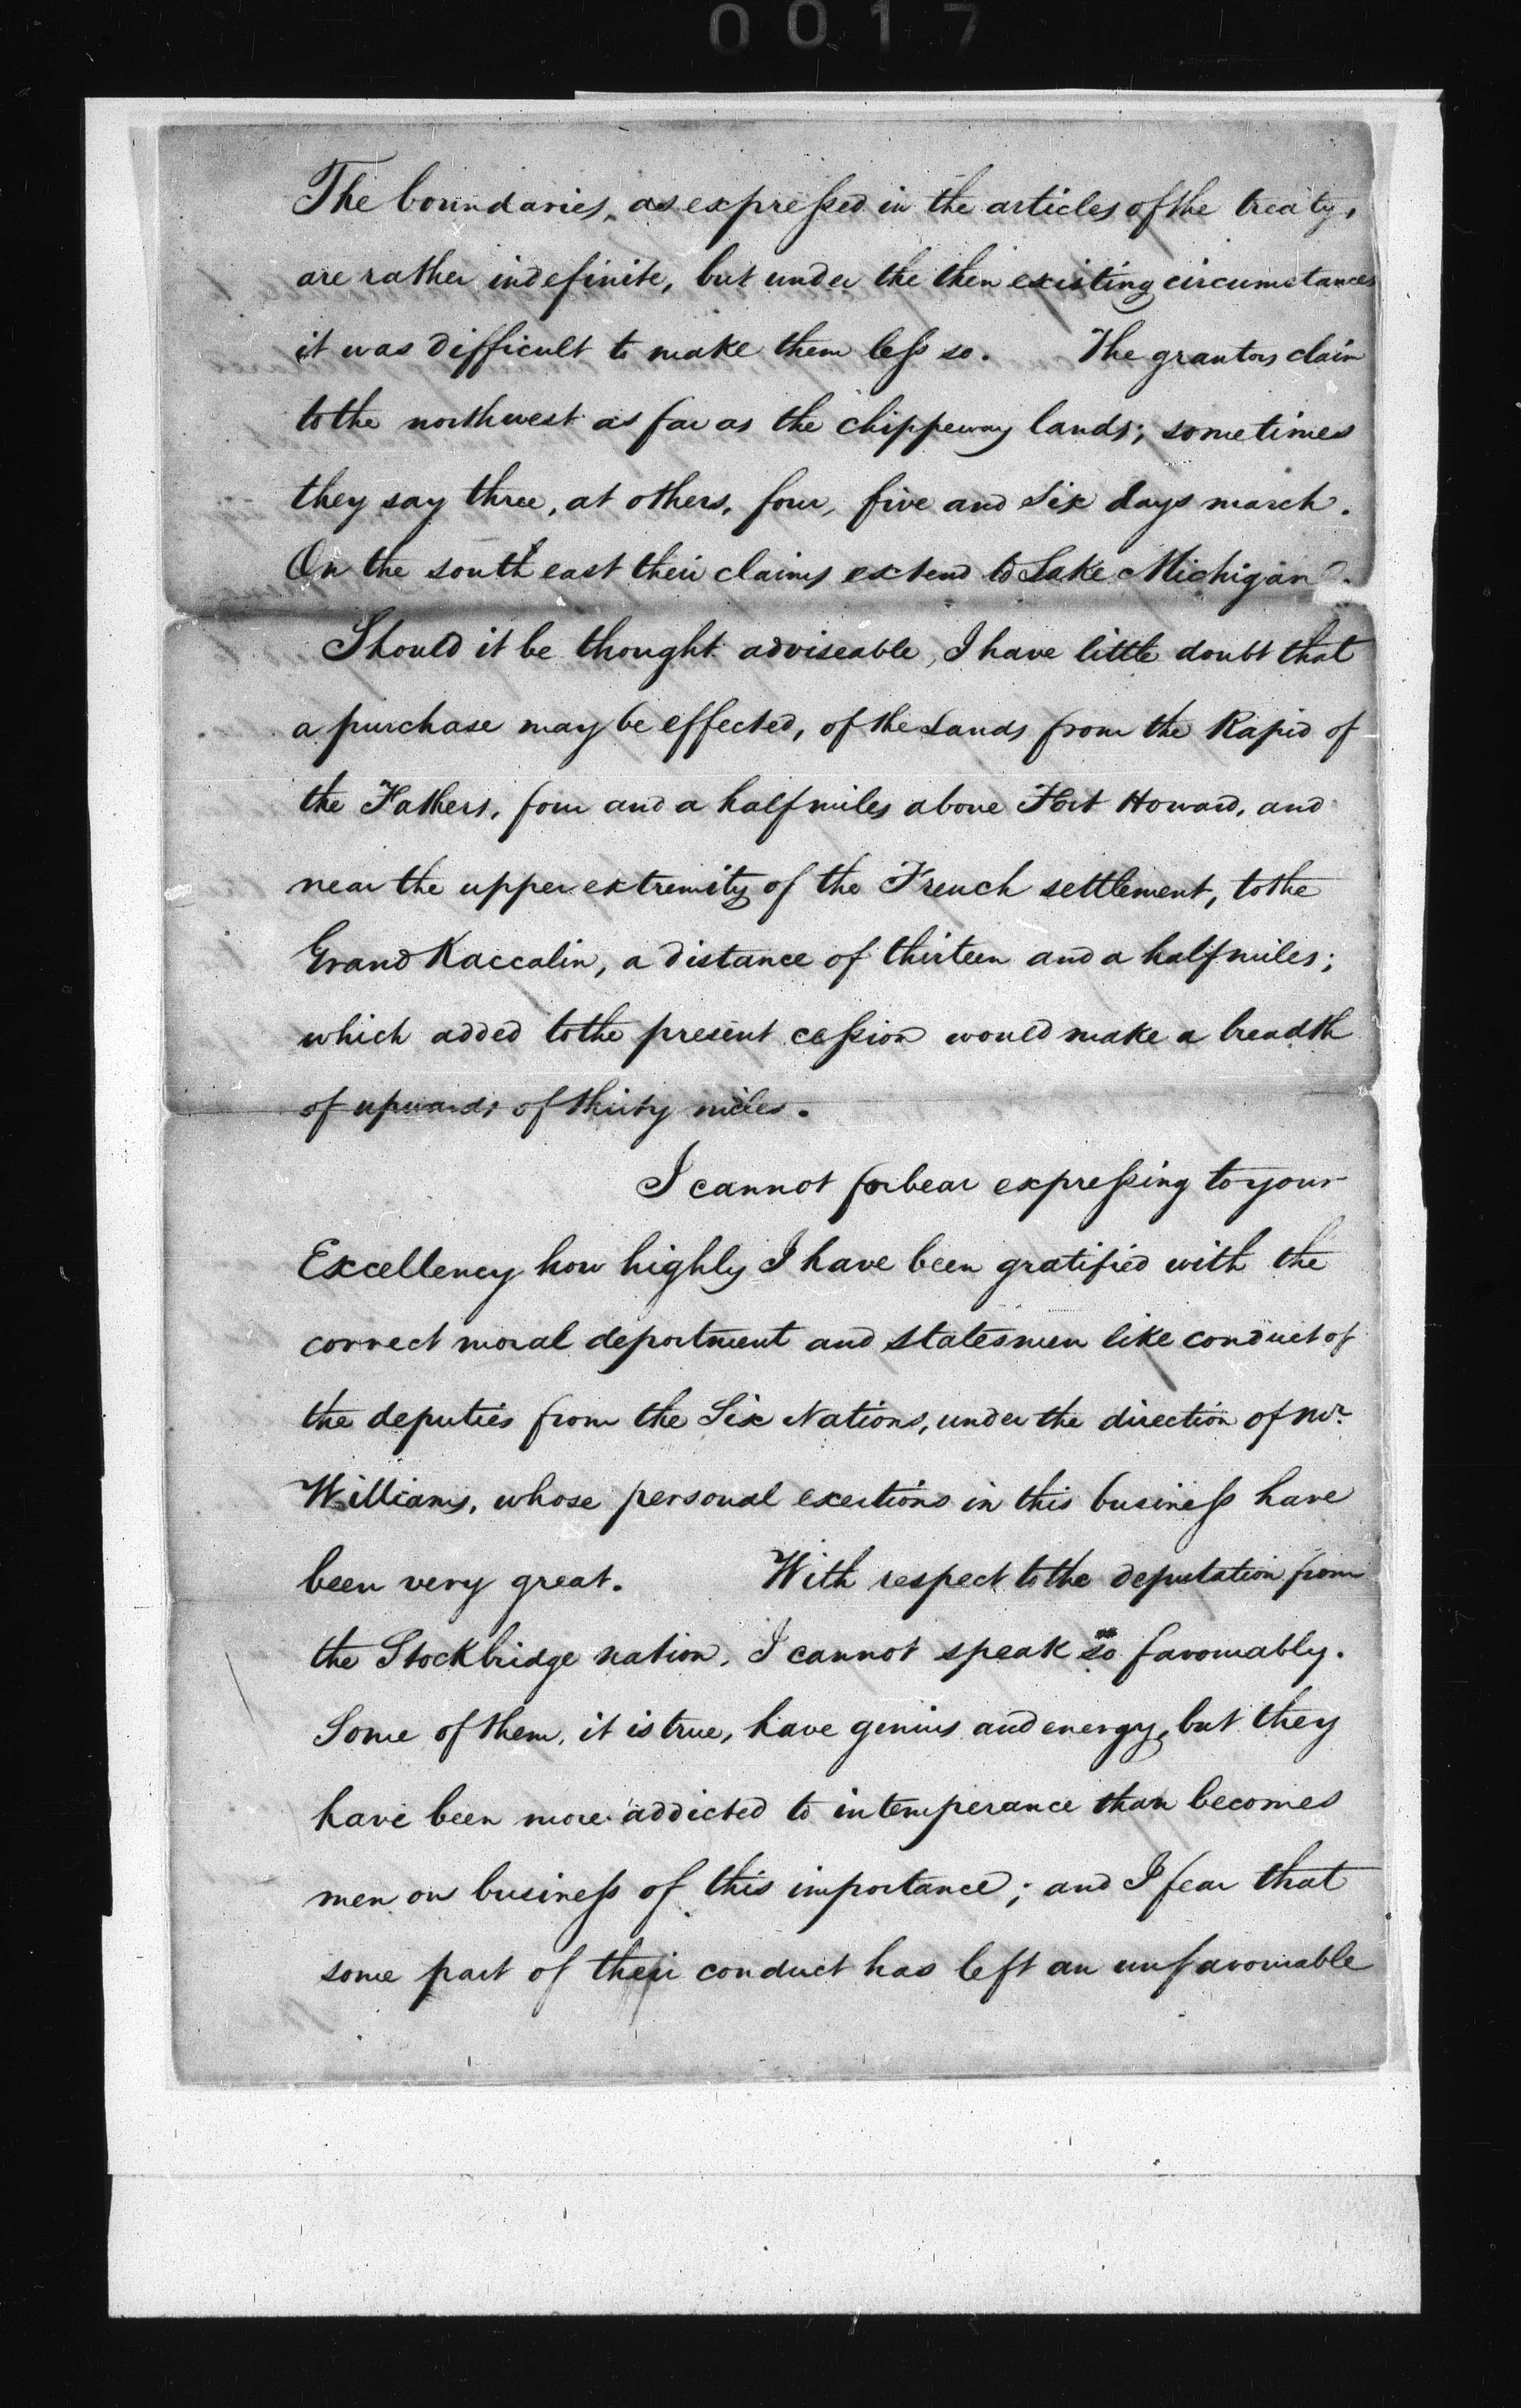 0017
The boundaries, as expressed in the articles of the treaty,
are rather indefinite, but under the then existing circumstances
it was difficult to make them less so. The grantors claim
to the northwest as far as the chippeway lands; sometimes
they say three, at others, four, five and six days march.
On the south east their claims extend to Lake Michigan.
Should it be thought adviseable, I have little doubt that
a purchase may be effected, of the Lands from the Rapid of
the Fathers, four and a half miles above Fort Howard, and
near the upper extremity of the French settlement, to the
Grand Kaccalin, a distance of thirteen and a half miles;
which added to the present cession would make a breadth
of upwards of thirty miles.
I cannot forbear expressing to your
Excellency how highly I have been gratified with the
correct moral deportment and statesmen like conduct of
the deputies from the Six Nations, under the direction of Mr.
Williams, whose personal exertions in this business have
been very great. With respect to the deputation from
the Stockbridge nation, I cannot speak so favourably.
Some of them, it is true, have genius and energy, but they
have been more addicted to intemperance than becomes
men on business of this importance; and I fear that
some part of their conduct has left an unfavourable